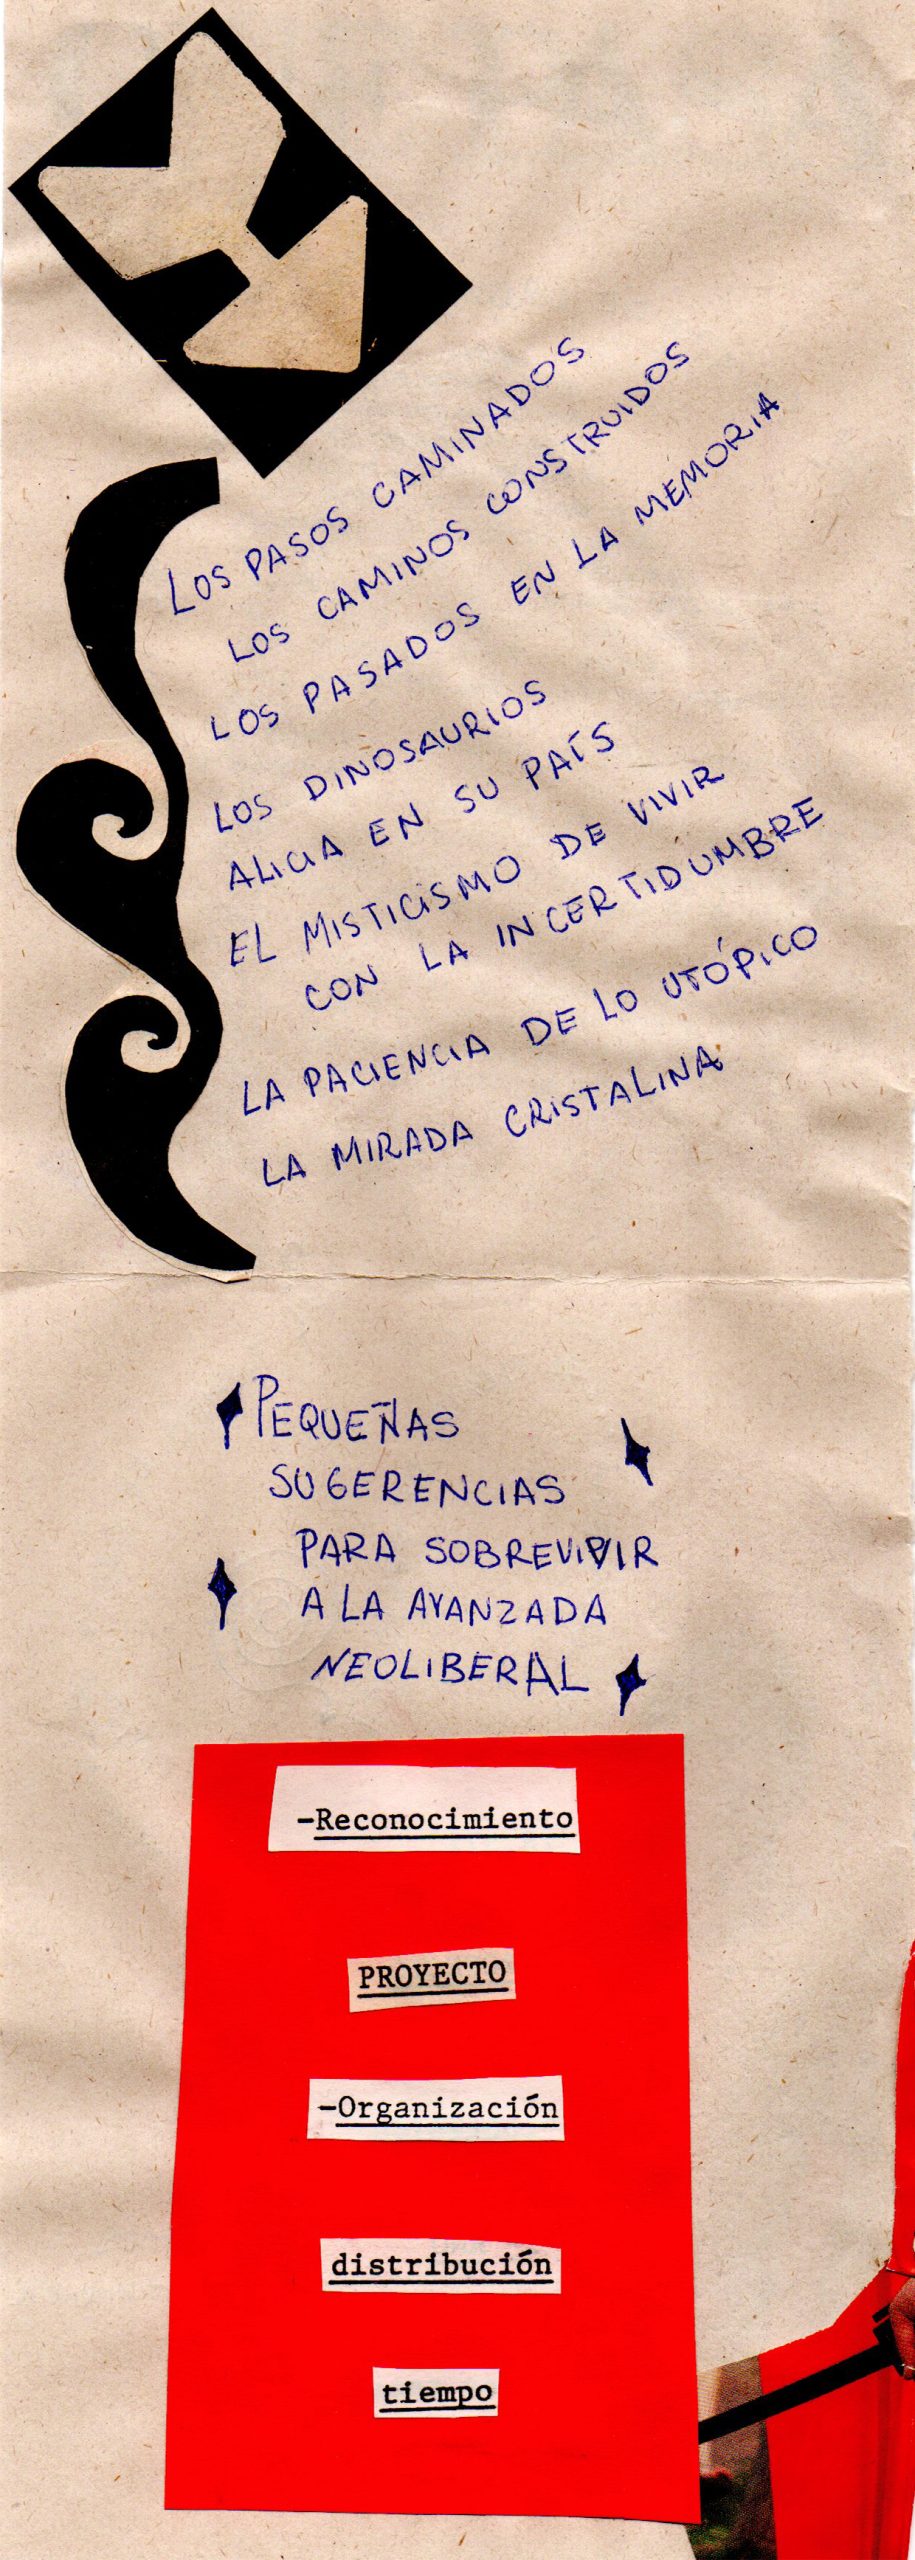 LOS PASOS CAMINADOS
LOS CAMINOS CONSTRUIDOS
LOS PASADOS EN LA MEMORIA
LOS DINOSAURIOS
ALICIA EN SU PAÍS
EL MISTICISMO DE VIVIR
CON LA INCERTIDUMBRE
LA PACIENCIA DE LO UTÓPICO
LA MIRADA CRISTALINA
PEQUEÑAS
SUGERENCIAS
PARA SOBREVIVIR
A LA AVANZADA
NEOLIBERAL
-Reconocimiento
PROYECTO
-Organización
distribución
tiempo